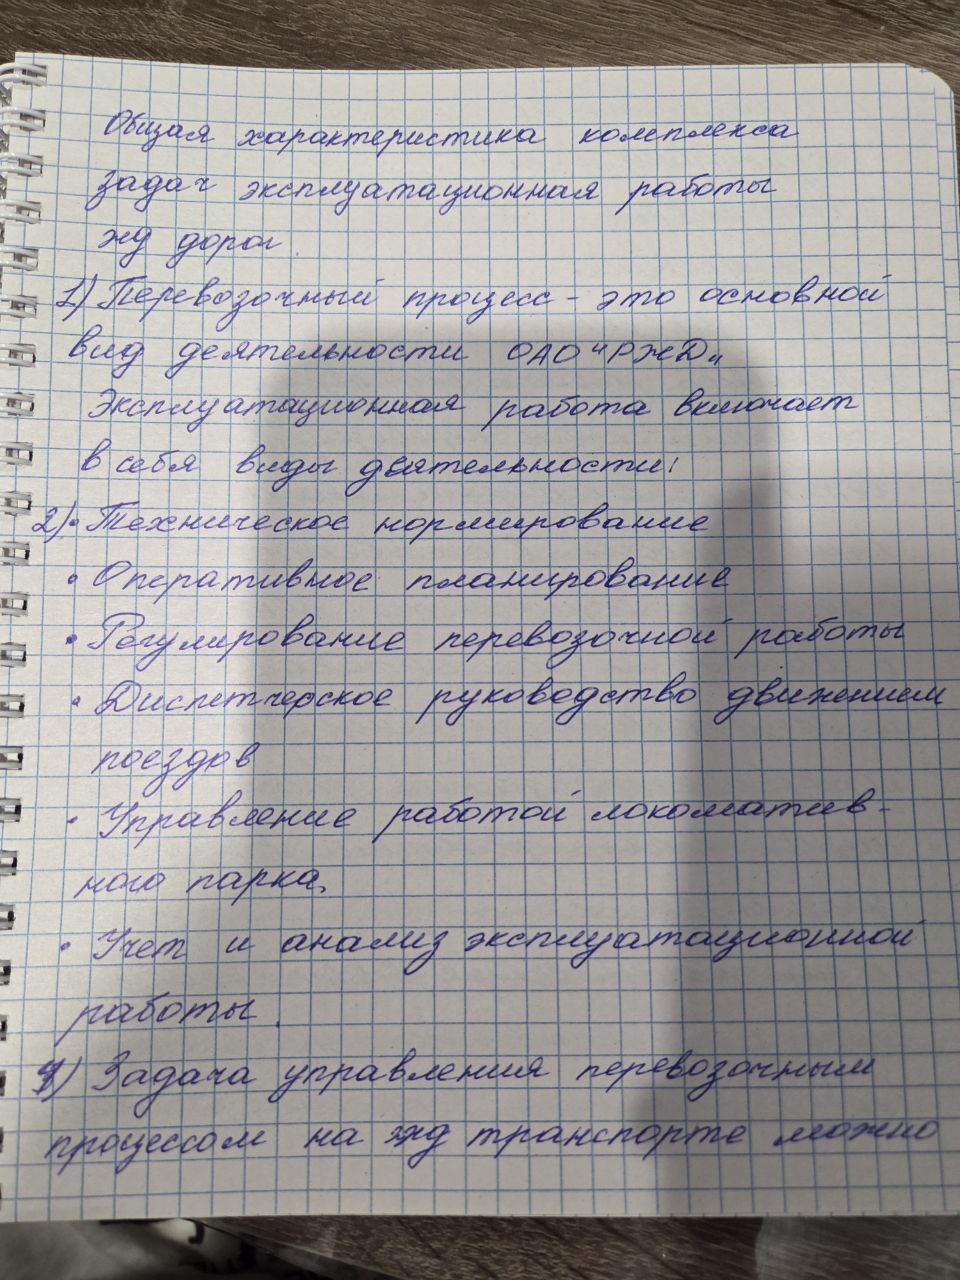 Общая характеристика комплекса
задач эксплуатационная работы
жд дорог.
1) Перевозочный процесс - это основной
вид деятельности ОАО "РЖД"
Эксплуатационная работа включает
в себя виды деятельности:
2) • Техническое нормирование
• Оперативное планирование
• Регулирование перевозочной работы
• Диспетчерское руководство движением
поездов
• Управление работой локоматив-
ного парка.
• Учет и анализ эксплуатационной
работы.
) Задача управления перевозочным
процессом на жд транспорте можно